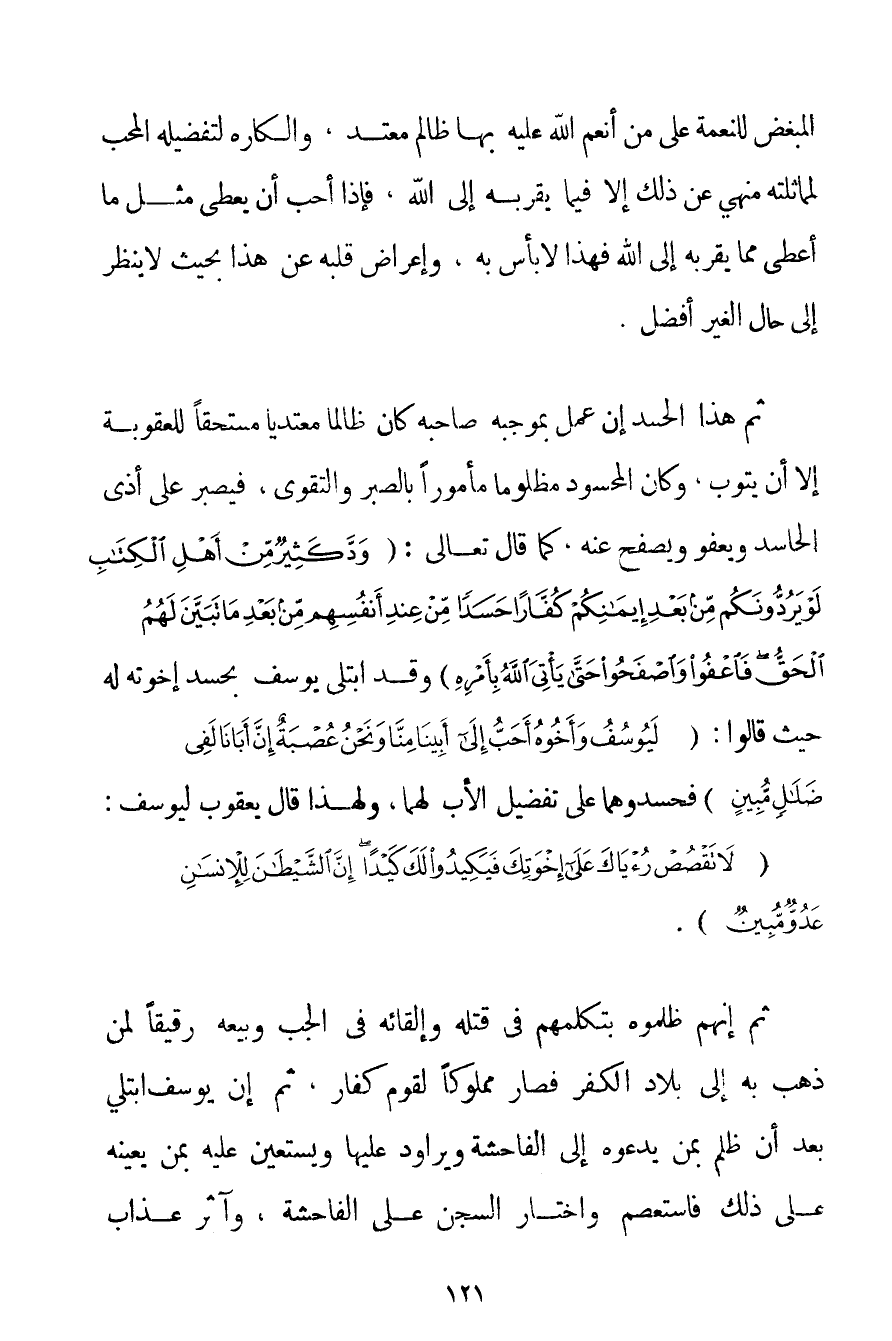 المبغض للنعمة على من أنعم الله عليه بها ظالم معتد ، والكاره لتفضيله المحب
لمماثلته منهي عن ذلك إلا فيما يقربه إلى الله ، فإذا أحب أن يعطى مثل ما
أعطى مما يقربه إلى الله فهذا لابأس به ، وإعراض قلبه عن هذا بحيث لاينظر
إلى حال الغير أفضل .
ثم هذا الحسد إن عمل بموجبه صاحبه كان ظالما معتديا مستحقاً للعقوبة
إلا أن يتوب ، وكان المحسود مظلوما مأموراً بالصبر والتقوى ، فيصبر على أذى
الحاسد ويعفو ويصفح عنه ، كما قال تعالى : ( وَدَّ كَثِيرٌ مِّنْ أَهْلِ ٱلْكِتَٰبِ
لَوْ يَرُدُّونَكُم مِّنۢ بَعْدِ إِيمَٰنِكُمْ كُفَّارًا حَسَدًا مِّنْ عِندِ أَنفُسِهِم مِّنۢ بَعْدِ مَا تَبَيَّنَ لَهُمُ
ٱلْحَقُّ ۖ فَٱعْفُوا۟ وَٱصْفَحُوا۟ حَتَّىٰ يَأْتِىَ ٱللَّهُ بِأَمْرِهِ ) وقد ابتلى يوسف بحسد إخوته له
حيث قالوا : ( لَيُوسُفُ وَأَخُوهُ أَحَبُّ إِلَىٰٓ أَبِينَا مِنَّا وَنَحْنُ عُصْبَةٌ إِنَّ أَبَانَا لَفِى
ضَلَٰلٍ مُّبِينٍ ) فحسدوهما على تفضيل الأب لهما ، ولهذا قال يعقوب ليوسف :
( لَا تَقْصُصْ رُءْيَاكَ عَلَىٰٓ إِخْوَتِكَ فَيَكِيدُوا۟ لَكَ كَيْدًا ۖ إِنَّ ٱلشَّيْطَٰنَ لِلْإِنسَٰنِ
عَدُوٌّ مُّبِينٌ ) .
ثم إنهم ظلموه بتكلمهم فى قتله وإلقائه فى الجب وبيعه رقيقاً لمن
ذهب به إلى بلاد الكفر فصار مملوكاً لقوم كفار ، ثم إن يوسف ابتلي
بعد أن ظلم بمن يدعوه إلى الفاحشة ويراود عليها ويستعين عليه بمن يعينه
على ذلك فاستعصم واختار السجن على الفاحشة ، وآثر عذاب
١٢١